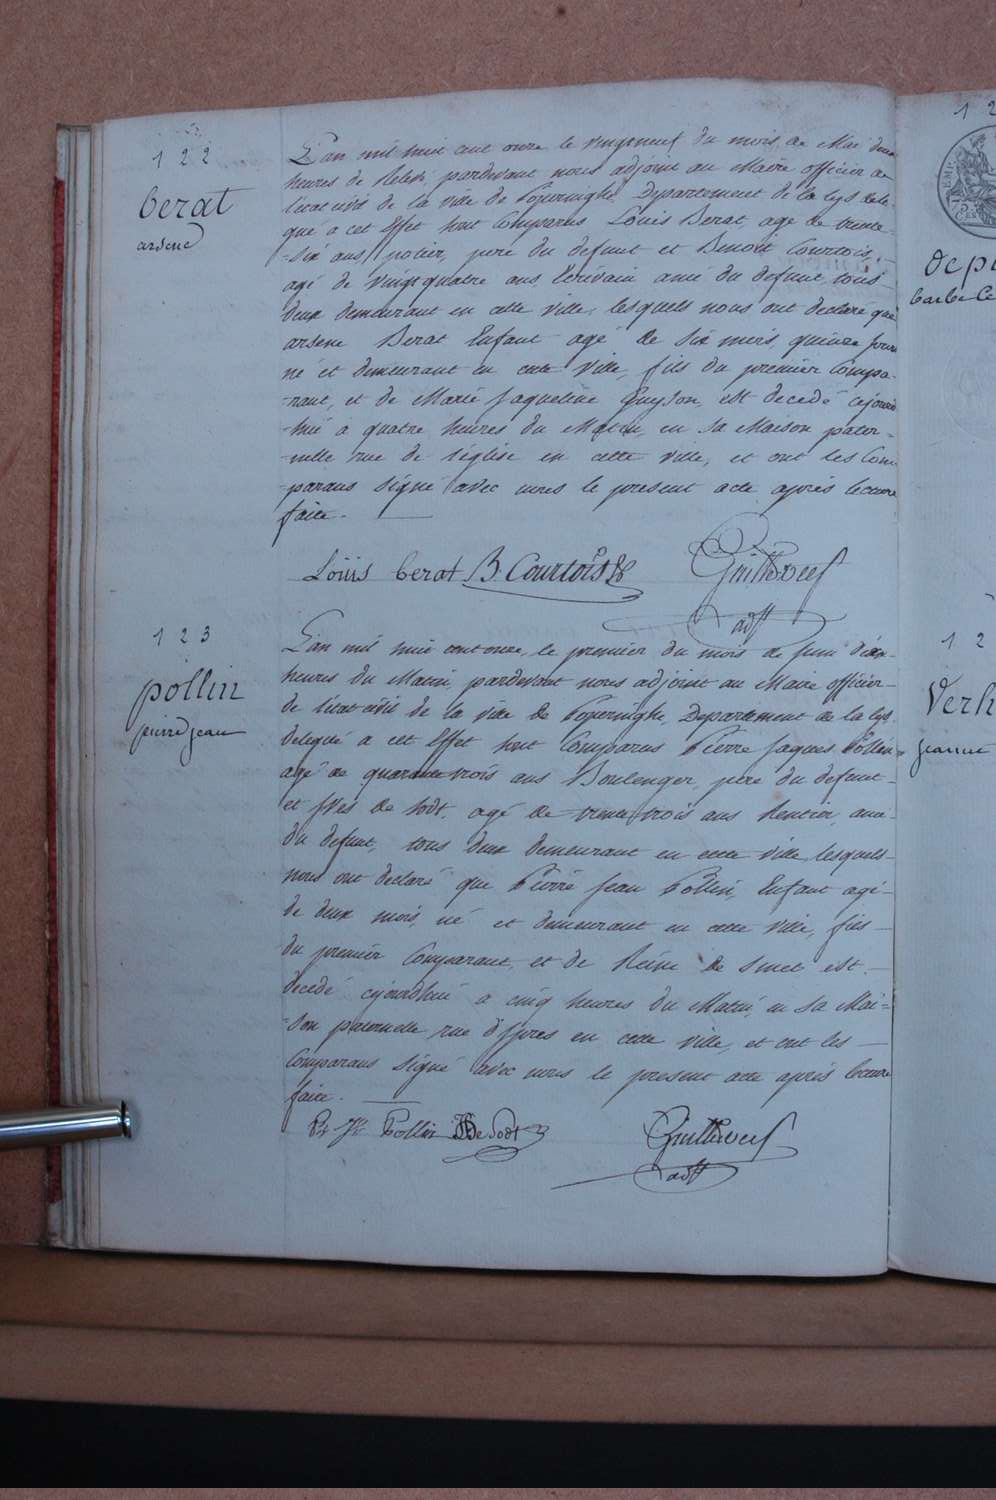 122
berat
arsene
L'an mil huit cent onze le vingtneuf du mois de Mai deux
heures de Relevé, pardevant nous adjoint au Maire officier de
l'état civil de la ville de Poperinghe, Departement de la Lys dele-
gué a cet Effet sont Comparus Louis Berat, agé de trente
-six ans, potier, pere du defunt et Benoit Courtois,
agé de vingt quatre ans, Ecrivain ami du defunt, tous
deux demeurant en cette ville, lesquels nous ont declaré que
arsene Berat Enfant agé de Six mois quinze jours
né et demeurant en cette Ville, fils du premier Compa-
-rant, et de Marie Jaqueline Guyson, est decedé cejourd
-hui a quatre heures du Matin, en sa Maison pater-
-nelle rue de l'église en cette ville, et ont les Com
-parans signé avec nous le present acte après lecture
faite.
Louis berat B. Courtois Guillewef
adjt
123
pollin
pierre jean
L'an mil huit cent onze, le premier du mois de Juin dix
heures du Matin pardevant nous adjoint au Maire officier
de l'etat civil de la ville de Poperinghe, Departement de la Lys
delegué a cet Effet sont Comparus Pierre Jaques Pollin
agé de quarante trois ans Boulenger, pere du defunt
et Yves de Sodt, agé de trente trois ans Rentier, ami
du defunt, tous deux demeurant en cette ville, lesquels
nous ont declaré que Pierre Jean Pollin, Enfant agé
de deux mois, né et demeurant en cette ville, fils
du premier Comparant, et de Reine de Smet est
decedé cejourdhui a cinq heures du Matin, en sa Mai=
-son paternelle rue d'Ypres en cette ville, et ont les
Comparans signé avec nous le present acte après lecture
faite.
Pollin De Sodt Guillewef
adjt
12
dep
barbe
12
Verh
jeanne